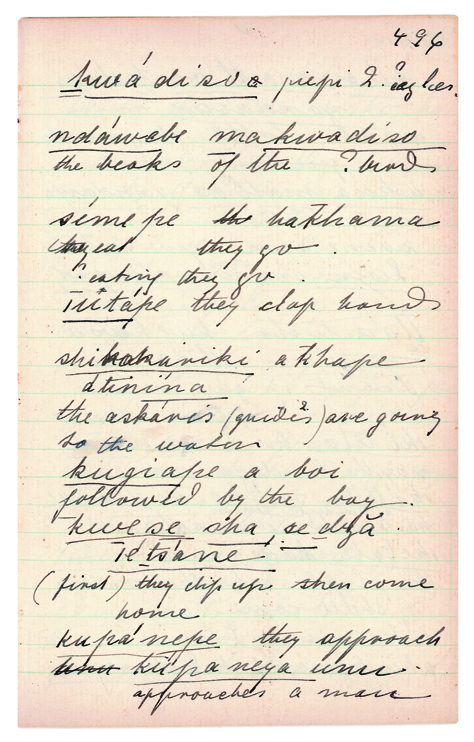 496
kwádiso piepi 2 ? eagles.
ndáwebe makwadíso
the beaks of the ? birds
símepe hakhama
they go
? eating they go
Tutápe they clap hands
shikakáriki akhape
atinína
the askáris (guides?) are going
to the water
kugiape a boi
followed by the boy.
kwese sha, se dză
Ietsáne
(first) they dip up then come
home
kupánepe they approach
kúpaneya unu
approaches a man